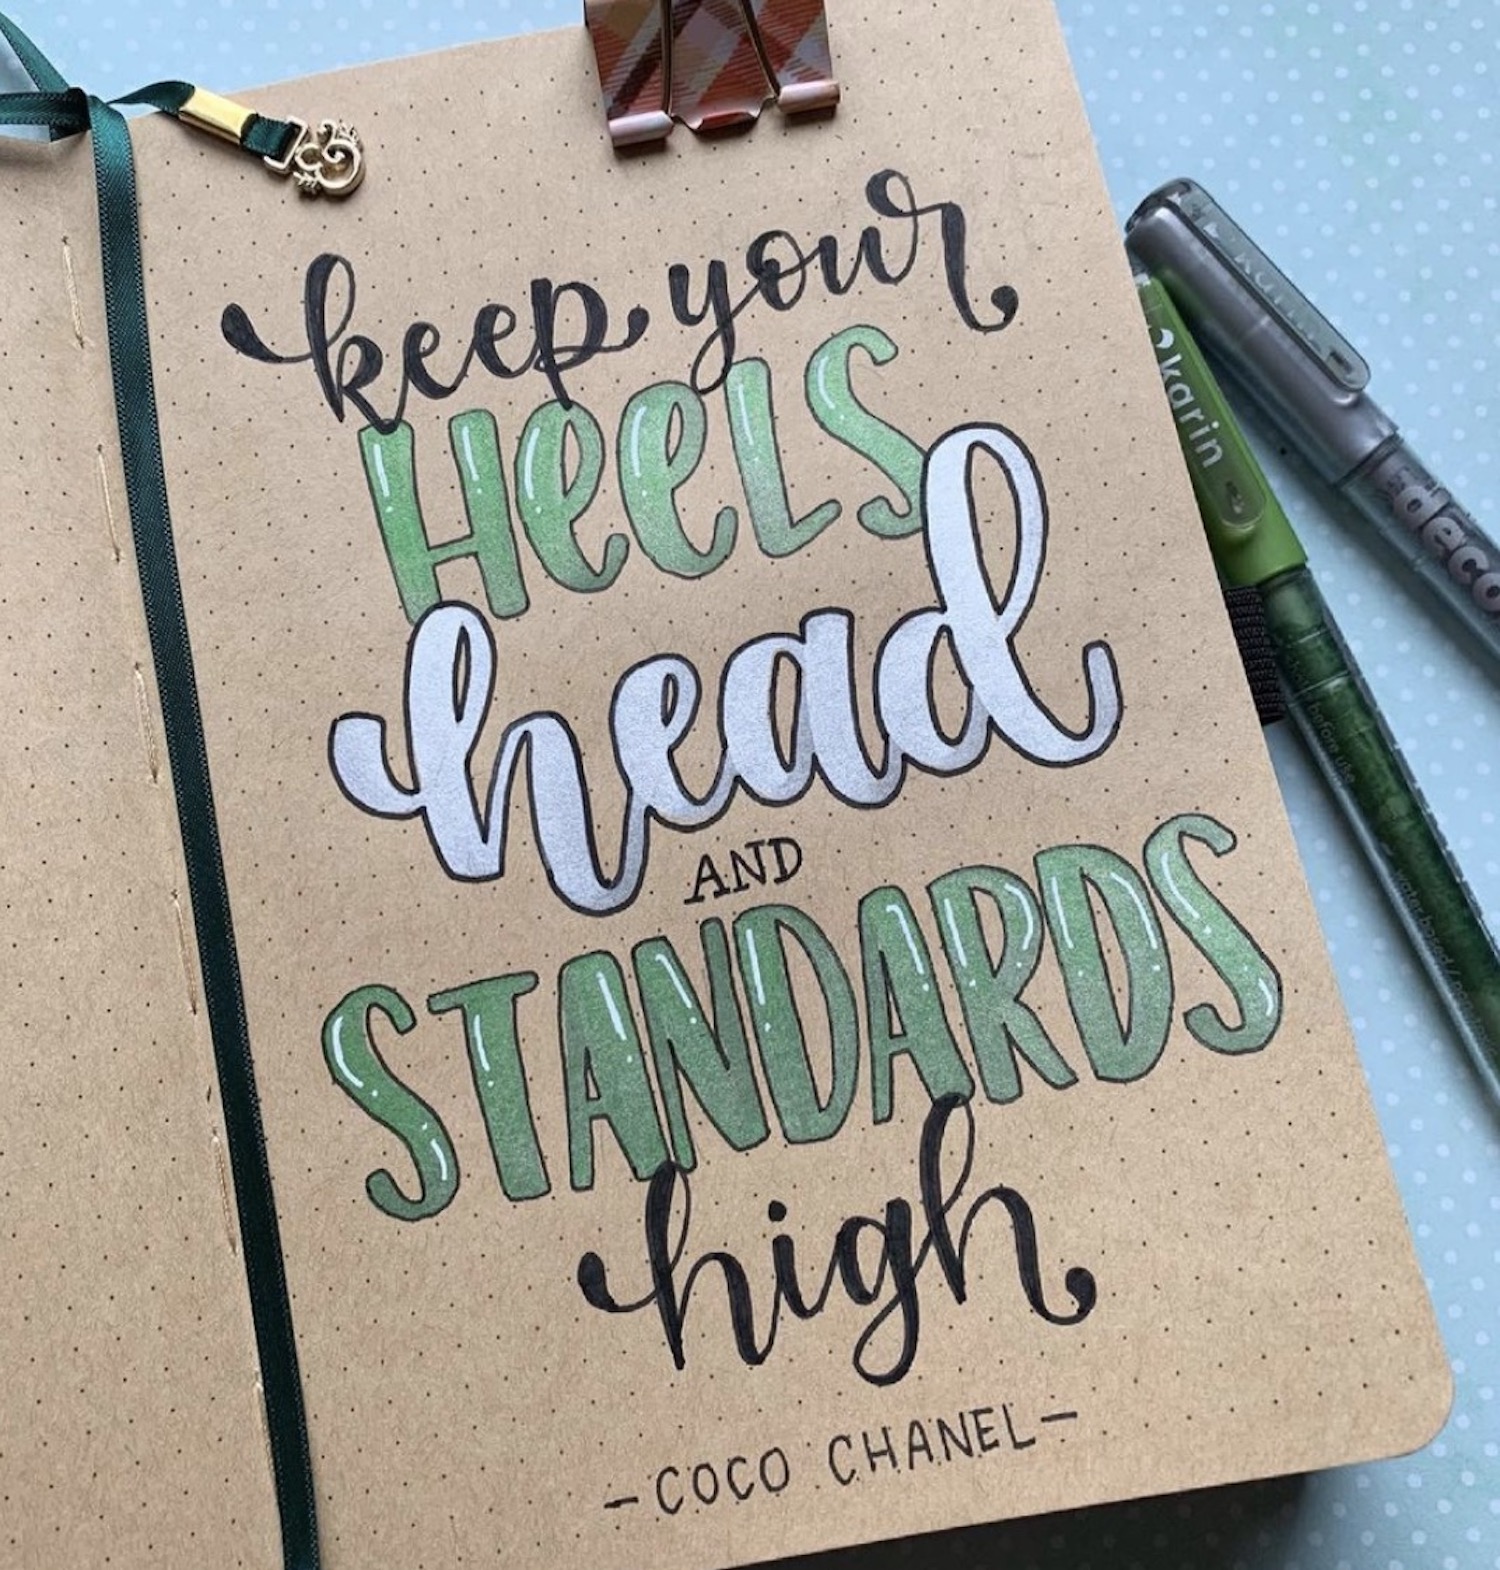 keep your
HeeLS
head
AND
STANDARDS
high
-COCO CHANEL-
karin
deco
before use